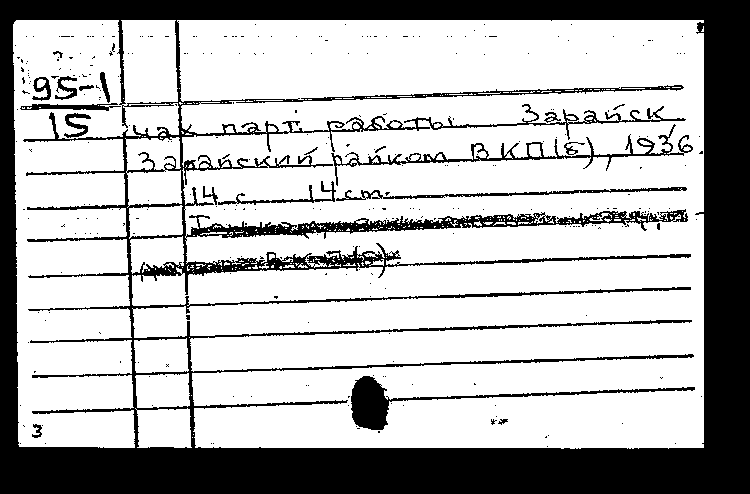 95-1
15
чах парт. работы. Зарайск
Зарайский райком ВКП(б), 1936.
14 с. 14 cm.
3